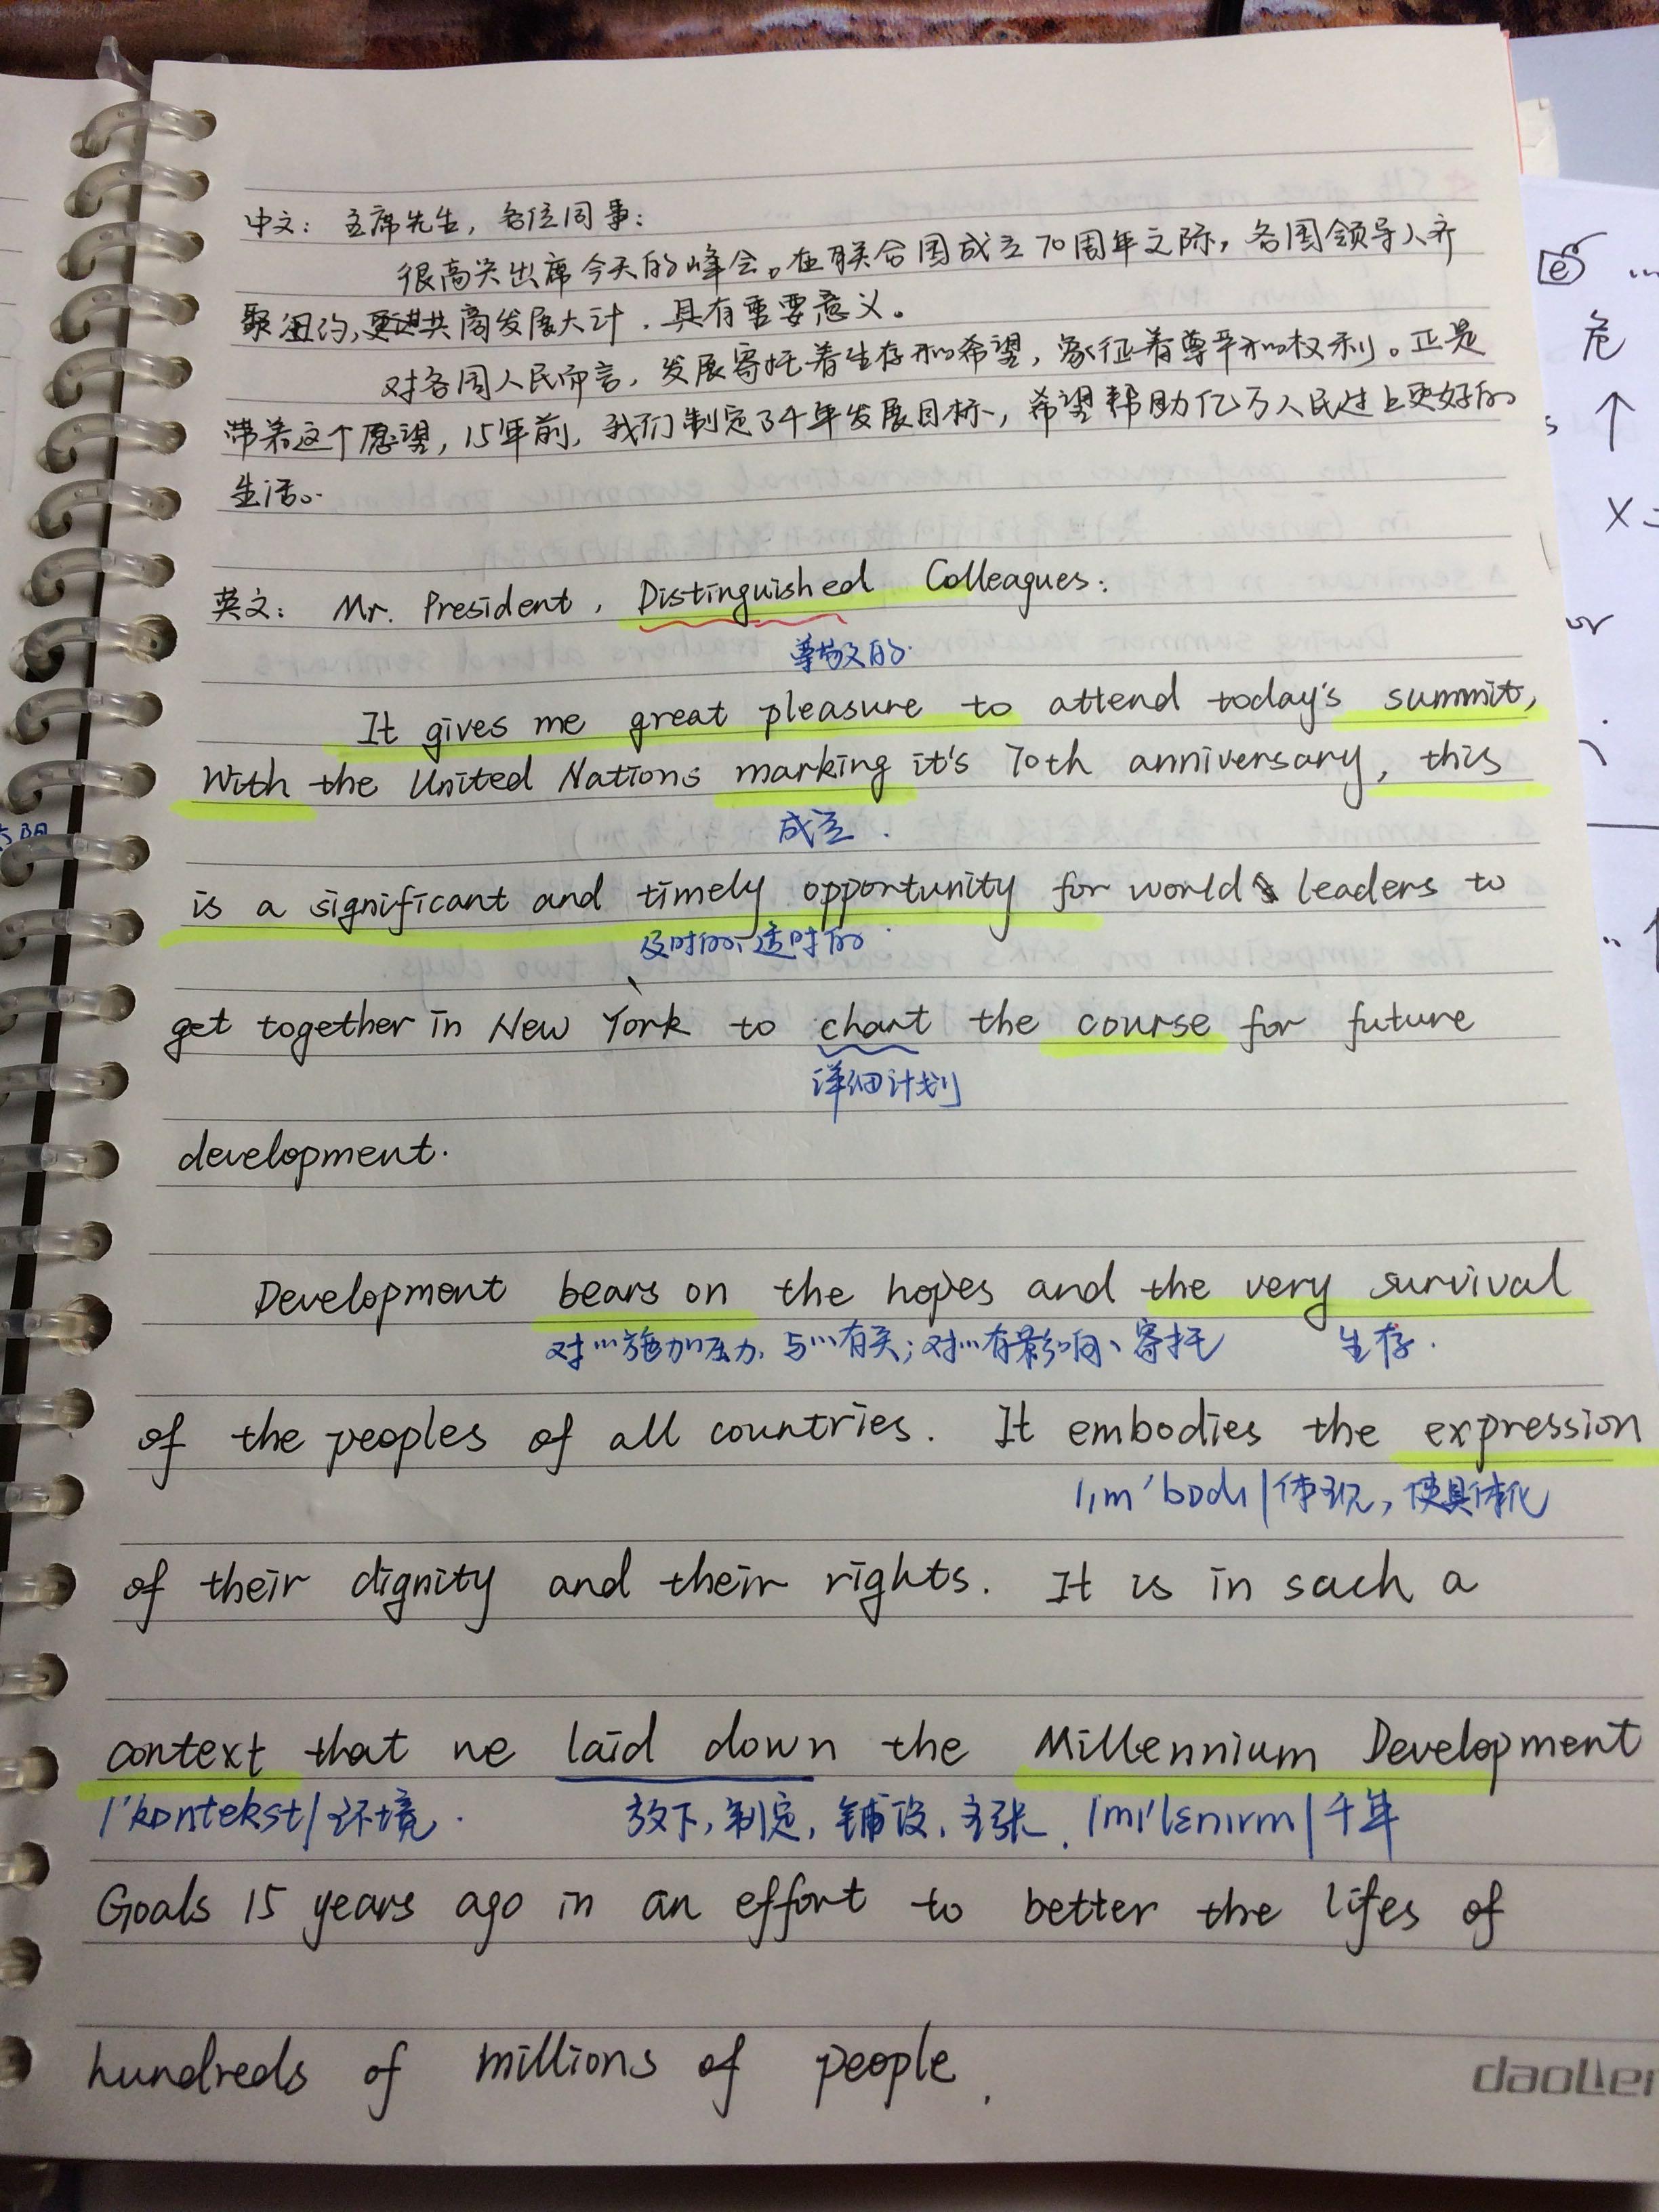 中文：主席先生，各位同事：
很高兴出席今天的峰会。在联合国成立70周年之际，各国领导人齐
聚纽约，共商发展大计，具有重要意义。
对各国人民而言，发展寄托着生存和希望，象征着尊严和权利。正是
带着这个愿望，15年前，我们制定了千年发展目标，希望帮助亿万人民过上更好的
生活。
英文：Mr. President, Distinguished Colleagues:
尊敬的
It gives me great pleasure to attend today's summit,
With the United Nations marking it's 70th anniversary, this
成立.
is a significant and timely opportunity for world leaders to
及时的、适时的
get together in New York to chart the course for future
详细计划
development.
Development bears on the hopes and the very survival
对…施加压力，与…有关；对…有影响、寄托 生存.
of the peoples of all countries. It embodies the expression
/ɪm'bɒdɪ/体现，使具体化
of their dignity and their rights. It is in such a
context that we laid down the Millennium Development
/'kɒntekst/环境. 放下，制定，铺设，主张. /mɪ'lenɪəm/千年
Goals 15 years ago in an effort to better the lifes of
hundreds of millions of people.
daolen
危
or